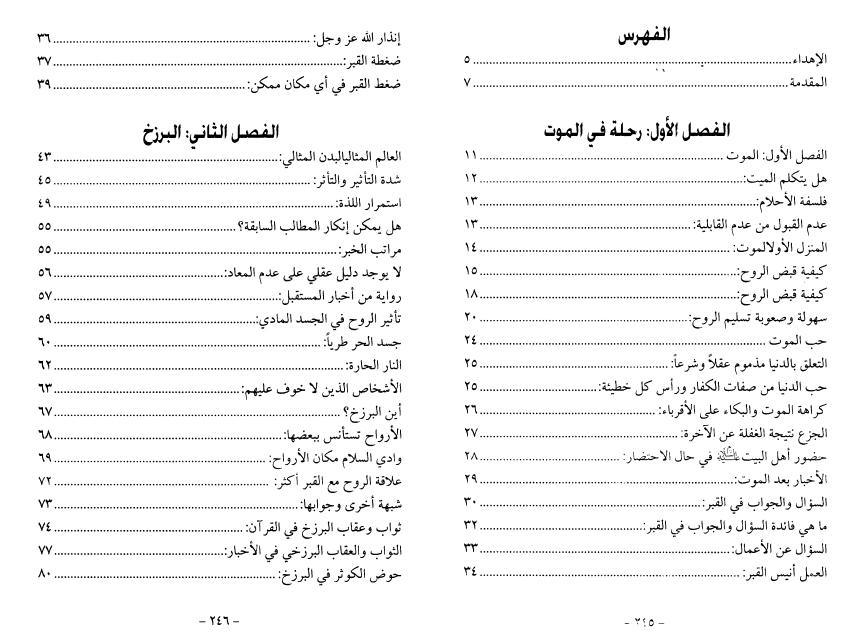 الفهرس
الإهداء ..... ٥
المقدمة ..... ٧
الفصل الأول: رحلة في الموت
الفصل الأول: الموت ..... ١١
هل يتكلم الميت: ..... ١٢
فلسفة الأحلام: ..... ١٣
عدم القبول من عدم القابلية: ..... ١٣
المنزل الأولالموت: ..... ١٤
كيفية قبض الروح: ..... ١٥
كيفية قبض الروح: ..... ١٨
سهولة وصعوبة تسليم الروح: ..... ٢٠
حب الموت ..... ٢٤
التعلق بالدنيا مذموم عقلاً وشرعاً: ..... ٢٥
حب الدنيا من صفات الكفار ورأس كل خطيئة: ..... ٢٥
كراهة الموت والبكاء على الأقرباء: ..... ٢٦
الجزع نتيجة الغفلة عن الآخرة: ..... ٢٧
حضور أهل البيت في حال الاحتضار: ..... ٢٨
الأخبار بعد الموت: ..... ٢٩
السؤال والجواب في القبر: ..... ٣٠
ما هي فائدة السؤال والجواب في القبر: ..... ٣٢
السؤال عن الأعمال: ..... ٣٣
العمل أنيس القبر: ..... ٣٤
- ٢٤٥ -
إنذار الله عز وجل: ..... ٣٦
ضغطة القبر: ..... ٣٧
ضغط القبر في أي مكان ممكن: ..... ٣٩
الفصل الثاني: البرزخ
العالم المثاليالبدن المثالي: ..... ٤٣
شدة التأثير والتأثر: ..... ٤٥
استمرار اللذة: ..... ٤٩
هل يمكن إنكار المطالب السابقة؟ ..... ٥٥
مراتب الخبر: ..... ٥٥
لا يوجد دليل عقلي على عدم المعاد: ..... ٥٦
رواية من أخبار المستقبل: ..... ٥٧
تأثير الروح في الجسد المادي: ..... ٥٩
جسد الحر طرياً: ..... ٦٠
النار الحارة: ..... ٦٢
الأشخاص الذين لا خوف عليهم: ..... ٦٣
أين البرزخ؟ ..... ٦٧
الأرواح تستأنس ببعضها: ..... ٦٨
وادي السلام مكان الأرواح: ..... ٦٩
علاقة الروح مع القبر أكثر: ..... ٧٢
شبهة أخرى وجوابها: ..... ٧٣
ثواب وعقاب البرزخ في القرآن: ..... ٧٤
الثواب والعقاب البرزخي في الأخبار: ..... ٧٧
حوض الكوثر في البرزخ: ..... ٨٠
- ٢٤٦ -